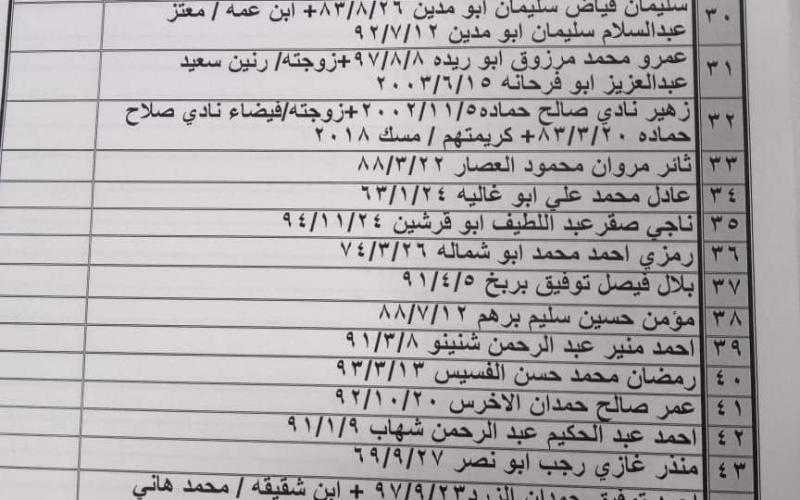 ٣٠ سليمان فياض سليمان ابو مدين ٨٣/٨/٢٦+ ابن عمه / معتز
عبدالسلام سليمان ابو مدين ٩٢/٧/١٢
٣١ عمرو محمد مرزوق ابو ريده ٩٧/٨/٨+زوجته/ رنين سعيد
عبدالعزيز ابو فرحانه ٢٠٠٣/٦/١٥
٣٢ زهير نادي صالح حماده٢٠٠٢/١١/٥+زوجته/فيضاء نادي صلاح
حماده ٨٣/٣/٢٠+ كريمتهم / مسك ٢٠١٨
٣٣ ثائر مروان محمود العصار ٨٨/٣/٢٢
٣٤ عادل محمد علي ابو غاليه ٦٣/١/٢٤
٣٥ ناجي صقرعبد اللطيف ابو قرشين ٩٤/١١/٢٤
٣٦ رمزي احمد محمد ابو شماله ٧٤/٣/٢٦
٣٧ بلال فيصل توفيق بربخ ٩١/٤/٥
٣٨ مؤمن حسين سليم برهم ٨٨/٧/١٢
٣٩ احمد منير عبد الرحمن شنينو ٩١/٣/٨
٤٠ رمضان محمد حسن الفسيس ٩٣/٣/١٣
٤١ عمر صالح حمدان الاخرس ٩٢/١٠/٢٠
٤٢ احمد عبد الحكيم عبد الرحمن شهاب ٩١/١/٩
٤٣ منذر غازي رجب ابو نصر ٦٩/٩/٢٧
حمدان الزرد٩٧/٩/٢٣ + ابن شقيقه / محمد هاني